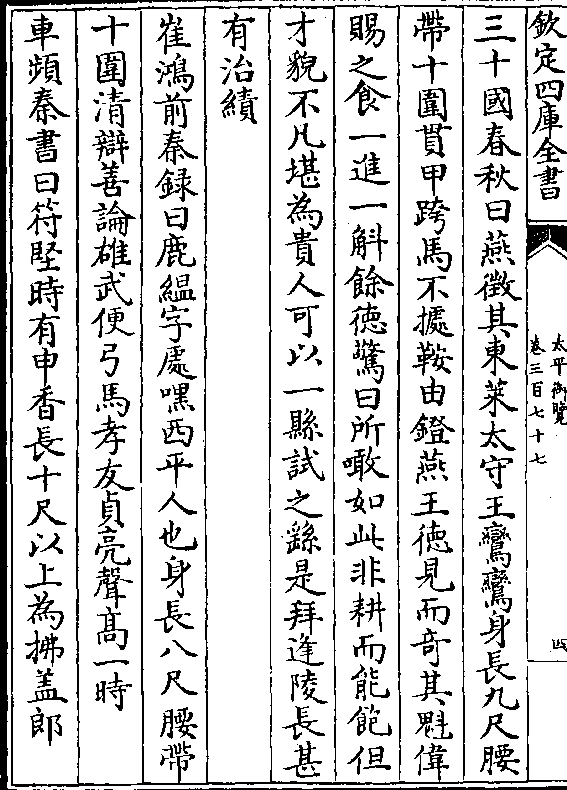 欽定四庫全書
太平御覽
卷三百七十七
四
三十國春秋曰燕徵其東萊太守王鸞鸞身長九尺腰
帶十圍貫甲跨馬不據鞍由鐙燕王徳見而奇其魁偉
賜之食一進一斛餘徳驚曰所噉如此非耕而能飽但
才貌不凡堪為貴人可以一縣試之繇是拜逢陵長甚
有治績
崔鴻前秦録曰鹿緼字處嘿西平人也身長八尺腰帶
十圍清辯善論雄武便弓馬孝友貞亮聲髙一時
車頻秦書曰符堅時有申香長十尺以上為拂盖郎